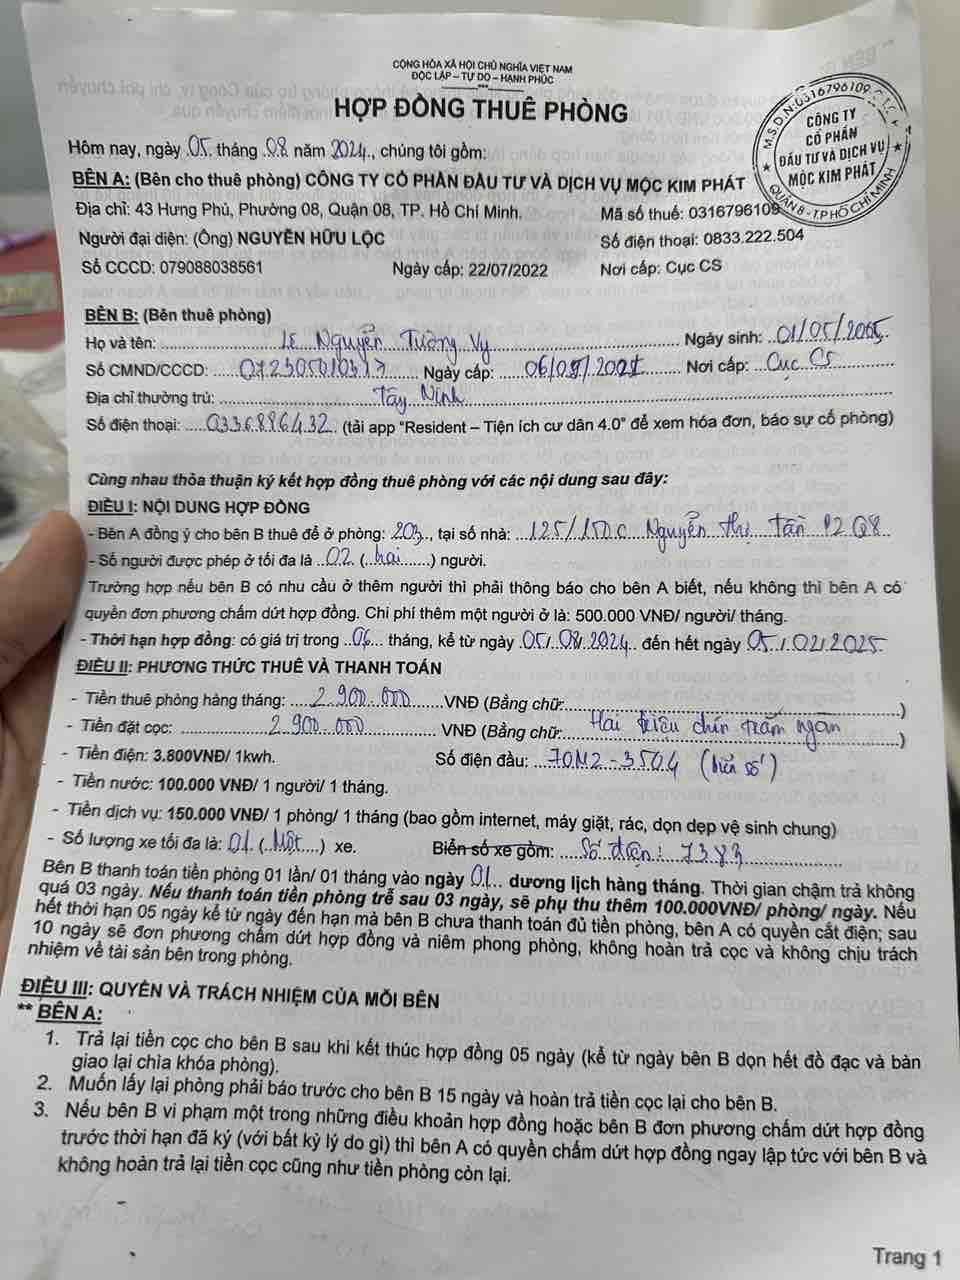 CỘNG HÒA XÃ HỘI CHỦ NGHĨA VIỆT NAM
ĐỘC LẬP – TỰ DO – HẠNH PHÚC
***
HỢP ĐỒNG THUÊ PHÒNG
M.S.D.N:0316796109
CÔNG TY
CỔ PHẦN
ĐẦU TƯ VÀ DỊCH VỤ
MỘC KIM PHÁT
QUẬN 8 - T.P HỒ CHÍ MINH
Hôm nay, ngày 05 tháng 08 năm 2024, chúng tôi gồm:
BÊN A: (Bên cho thuê phòng) CÔNG TY CỔ PHẦN ĐẦU TƯ VÀ DỊCH VỤ MỘC KIM PHÁT
Địa chỉ: 43 Hưng Phú, Phường 08, Quận 08, TP. Hồ Chí Minh. Mã số thuế: 0316796109
Người đại diện: (Ông) NGUYỄN HỮU LỘC Số điện thoại: 0833.222.504
Số CCCD: 079088038561 Ngày cấp: 22/07/2022 Nơi cấp: Cục CS
BÊN B: (Bên thuê phòng)
Họ và tên: Lê Nguyễn Tường Vy Ngày sinh: 01/05/2005
Số CMND/CCCD: Ngày cấp: 06/05/2021 Nơi cấp: Cục CS
Địa chỉ thường trú: Tây Ninh
Số điện thoại: 0336886432 (tải app "Resident – Tiện ích cư dân 4.0" để xem hóa đơn, báo sự cố phòng)
Cùng nhau thỏa thuận ký kết hợp đồng thuê phòng với các nội dung sau đây:
ĐIỀU I: NỘI DUNG HỢP ĐỒNG
- Bên A đồng ý cho bên B thuê để ở phòng: 203, tại số nhà: 125/150C Nguyễn Thị Tần P2 Q8
- Số người được phép ở tối đa là 02 (hai) người.
Trường hợp nếu bên B có nhu cầu ở thêm người thì phải thông báo cho bên A biết, nếu không thì bên A có
quyền đơn phương chấm dứt hợp đồng. Chi phí thêm một người ở là: 500.000 VNĐ/ người/ tháng.
- Thời hạn hợp đồng: có giá trị trong 06 tháng, kể từ ngày 05/08/2024 đến hết ngày 05/02/2025
ĐIỀU II: PHƯƠNG THỨC THUÊ VÀ THANH TOÁN
- Tiền thuê phòng hàng tháng: 2.900.000 VNĐ (Bằng chữ: )
- Tiền đặt cọc: 2.900.000 VNĐ (Bằng chữ: Hai triệu chín trăm ngàn)
- Tiền điện: 3.800VNĐ/ 1kwh. Số điện đầu: 70M2-3504 (biển số)
- Tiền nước: 100.000 VNĐ/ 1 người/ 1 tháng.
- Tiền dịch vụ: 150.000 VNĐ/ 1 phòng/ 1 tháng (bao gồm internet, máy giặt, rác, dọn dẹp vệ sinh chung)
- Số lượng xe tối đa là: 01 (Một) xe. Biển số xe gồm: Số điện: 7383
Bên B thanh toán tiền phòng 01 lần/ 01 tháng vào ngày 01 dương lịch hàng tháng. Thời gian chậm trả không
quá 03 ngày. Nếu thanh toán tiền phòng trễ sau 03 ngày, sẽ phụ thu thêm 100.000VNĐ/ phòng/ ngày. Nếu
hết thời hạn 05 ngày kể từ ngày đến hạn mà bên B chưa thanh toán đủ tiền phòng, bên A có quyền cắt điện; sau
10 ngày sẽ đơn phương chấm dứt hợp đồng và niêm phong phòng, không hoàn trả cọc và không chịu trách
nhiệm về tài sản bên trong phòng.
ĐIỀU III: QUYỀN VÀ TRÁCH NHIỆM CỦA MỖI BÊN
** BÊN A:
1. Trả lại tiền cọc cho bên B sau khi kết thúc hợp đồng 05 ngày (kể từ ngày bên B dọn hết đồ đạc và bàn
giao lại chìa khóa phòng).
2. Muốn lấy lại phòng phải báo trước cho bên B 15 ngày và hoàn trả tiền cọc lại cho bên B.
3. Nếu bên B vi phạm một trong những điều khoản hợp đồng hoặc bên B đơn phương chấm dứt hợp đồng
trước thời hạn đã ký (với bất kỳ lý do gì) thì bên A có quyền chấm dứt hợp đồng ngay lập tức với bên B và
không hoàn trả lại tiền cọc cũng như tiền phòng còn lại.
Trang 1